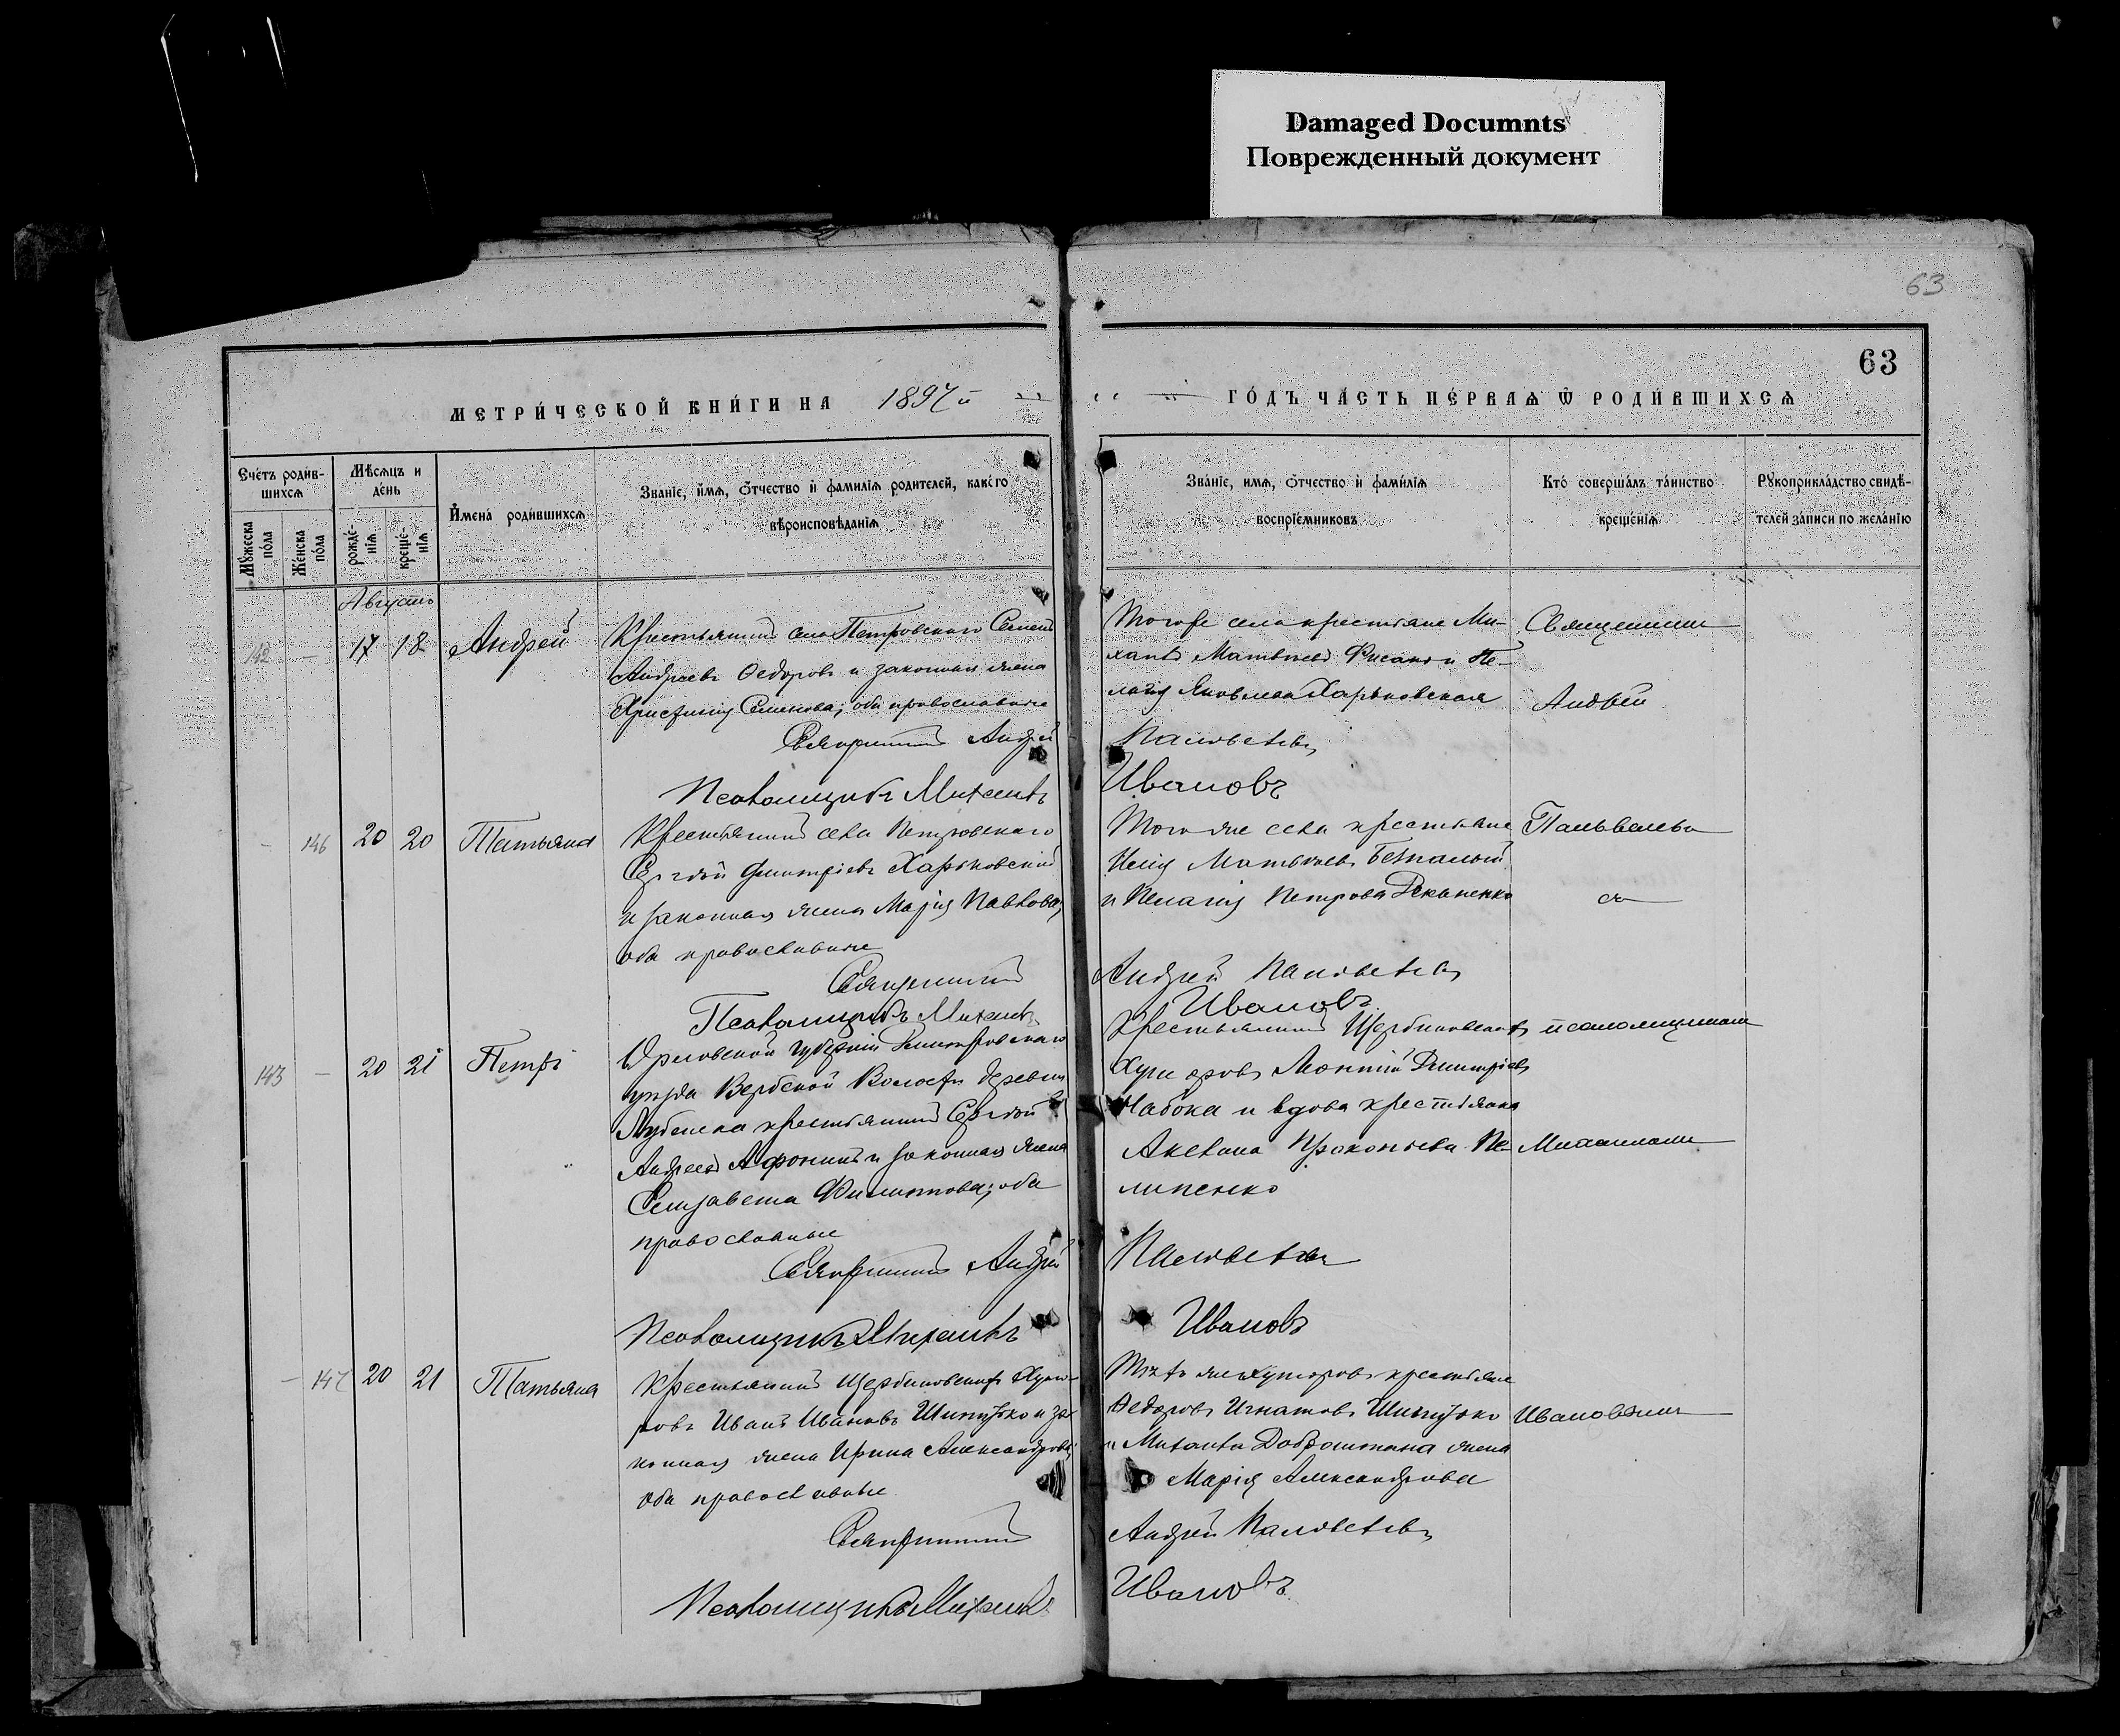 Damaged Documnts
Поврежденный документ
63
63
МЕТРИ́ЧЕСКОЙ КНИ́ГИ НА 1897й
ГО́ДЪ ЧА́СТЬ ПЕ́РВАѦ Ѽ РОДИ́ВШИХСѦ
Счётъ роди́в-
шихсѧ
Мѣ́сѧцъ и
де́нь
Мꙋ́жеска
по́ла
Же́нска
по́ла
рожде́-
нїѧ
креще́-
нїѧ
Имена̀ роди́вшихсѧ
Зва́нїе, и́мѧ, ѻ́тчество и̂ фами́лїѧ роди́телей, како́го
вѣроисповѣ́данїѧ
Зва́нїе, имѧ, ѻ́тчество и̂ фами́лїѧ
воспрїе́мниковъ
Кто̀ соверша́лъ та́инство
креще́нїѧ
Рꙋкоприкла́дство свидѣ́-
телей за́писи по жела́нїю
Августъ
142 — 17 18 Андрей
Крестьянинъ села Петровскаго Семенъ
Андреевъ Федоровъ и законная жена
Христинія Семенова; оба православные
Священникъ Андрей
Псаломщикъ Михаилъ
Тогоже села крестьяне Ми-
хаилъ Матвѣевъ и Пе-
лагія Яковлева Харьковская
Ивановъ
Священникъ
Андрей
- 146 20 20 Татьяна
Крестьянинъ села Петровскаго
Сергѣй Димитріевъ Харьковскій
и законная жена Марія Павлова;
оба православные
Священникъ
Псаломщикъ Михаилъ
Того же села крестьяне
Матвѣевъ
и Пелагія Петрова Деканенко
Андрей
Ивановъ
съ
143 — 20 21 Петръ
Орловской губерніи Дмитровскаго
уѣзда Вербской Волости деревни
крестьянинъ Сергѣй
Андреевъ Афонинъ и законная жена
Елизавета Филиппова; оба
православные
Священникъ Андрей
Псаломщикъ Михаилъ
Крестьянинъ Щербиновскихъ
Хуторовъ Димитріевъ
Чабока и вдова крестьянка
Прокопьева Пе-
липенко
Ивановъ
псаломщикомъ
Михаиломъ
— 147 20 21 Татьяна
Крестьянинъ Щербиновскихъ Хуто-
ровъ Иванъ Ивановъ Шипулько и за-
конная жена Ирина Александрова;
оба православные
Священникъ
Псаломщикъ Михаилъ
Тѣхъ же хуторовъ крестьяне
Федоръ Игнатовъ Шипулько
и Михаила жена
Марія Александрова
Андрей
Ивановъ
Ивановымъ